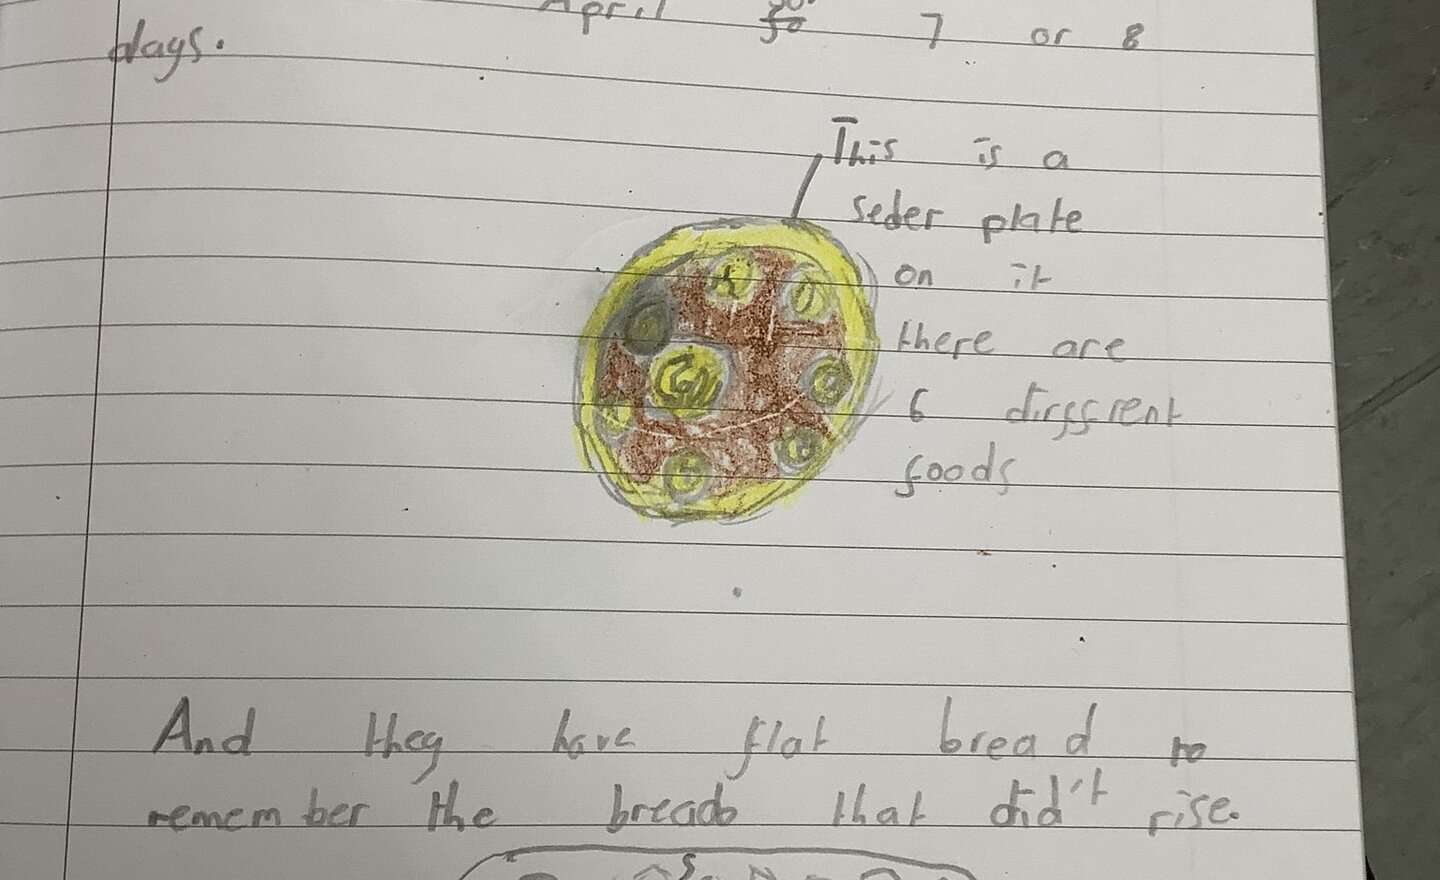 April 7 or 8
days.
This is a
seder plate
on it
there are
6 diffrent
foods
And they have flat bread to
remember the bread that did't rise.